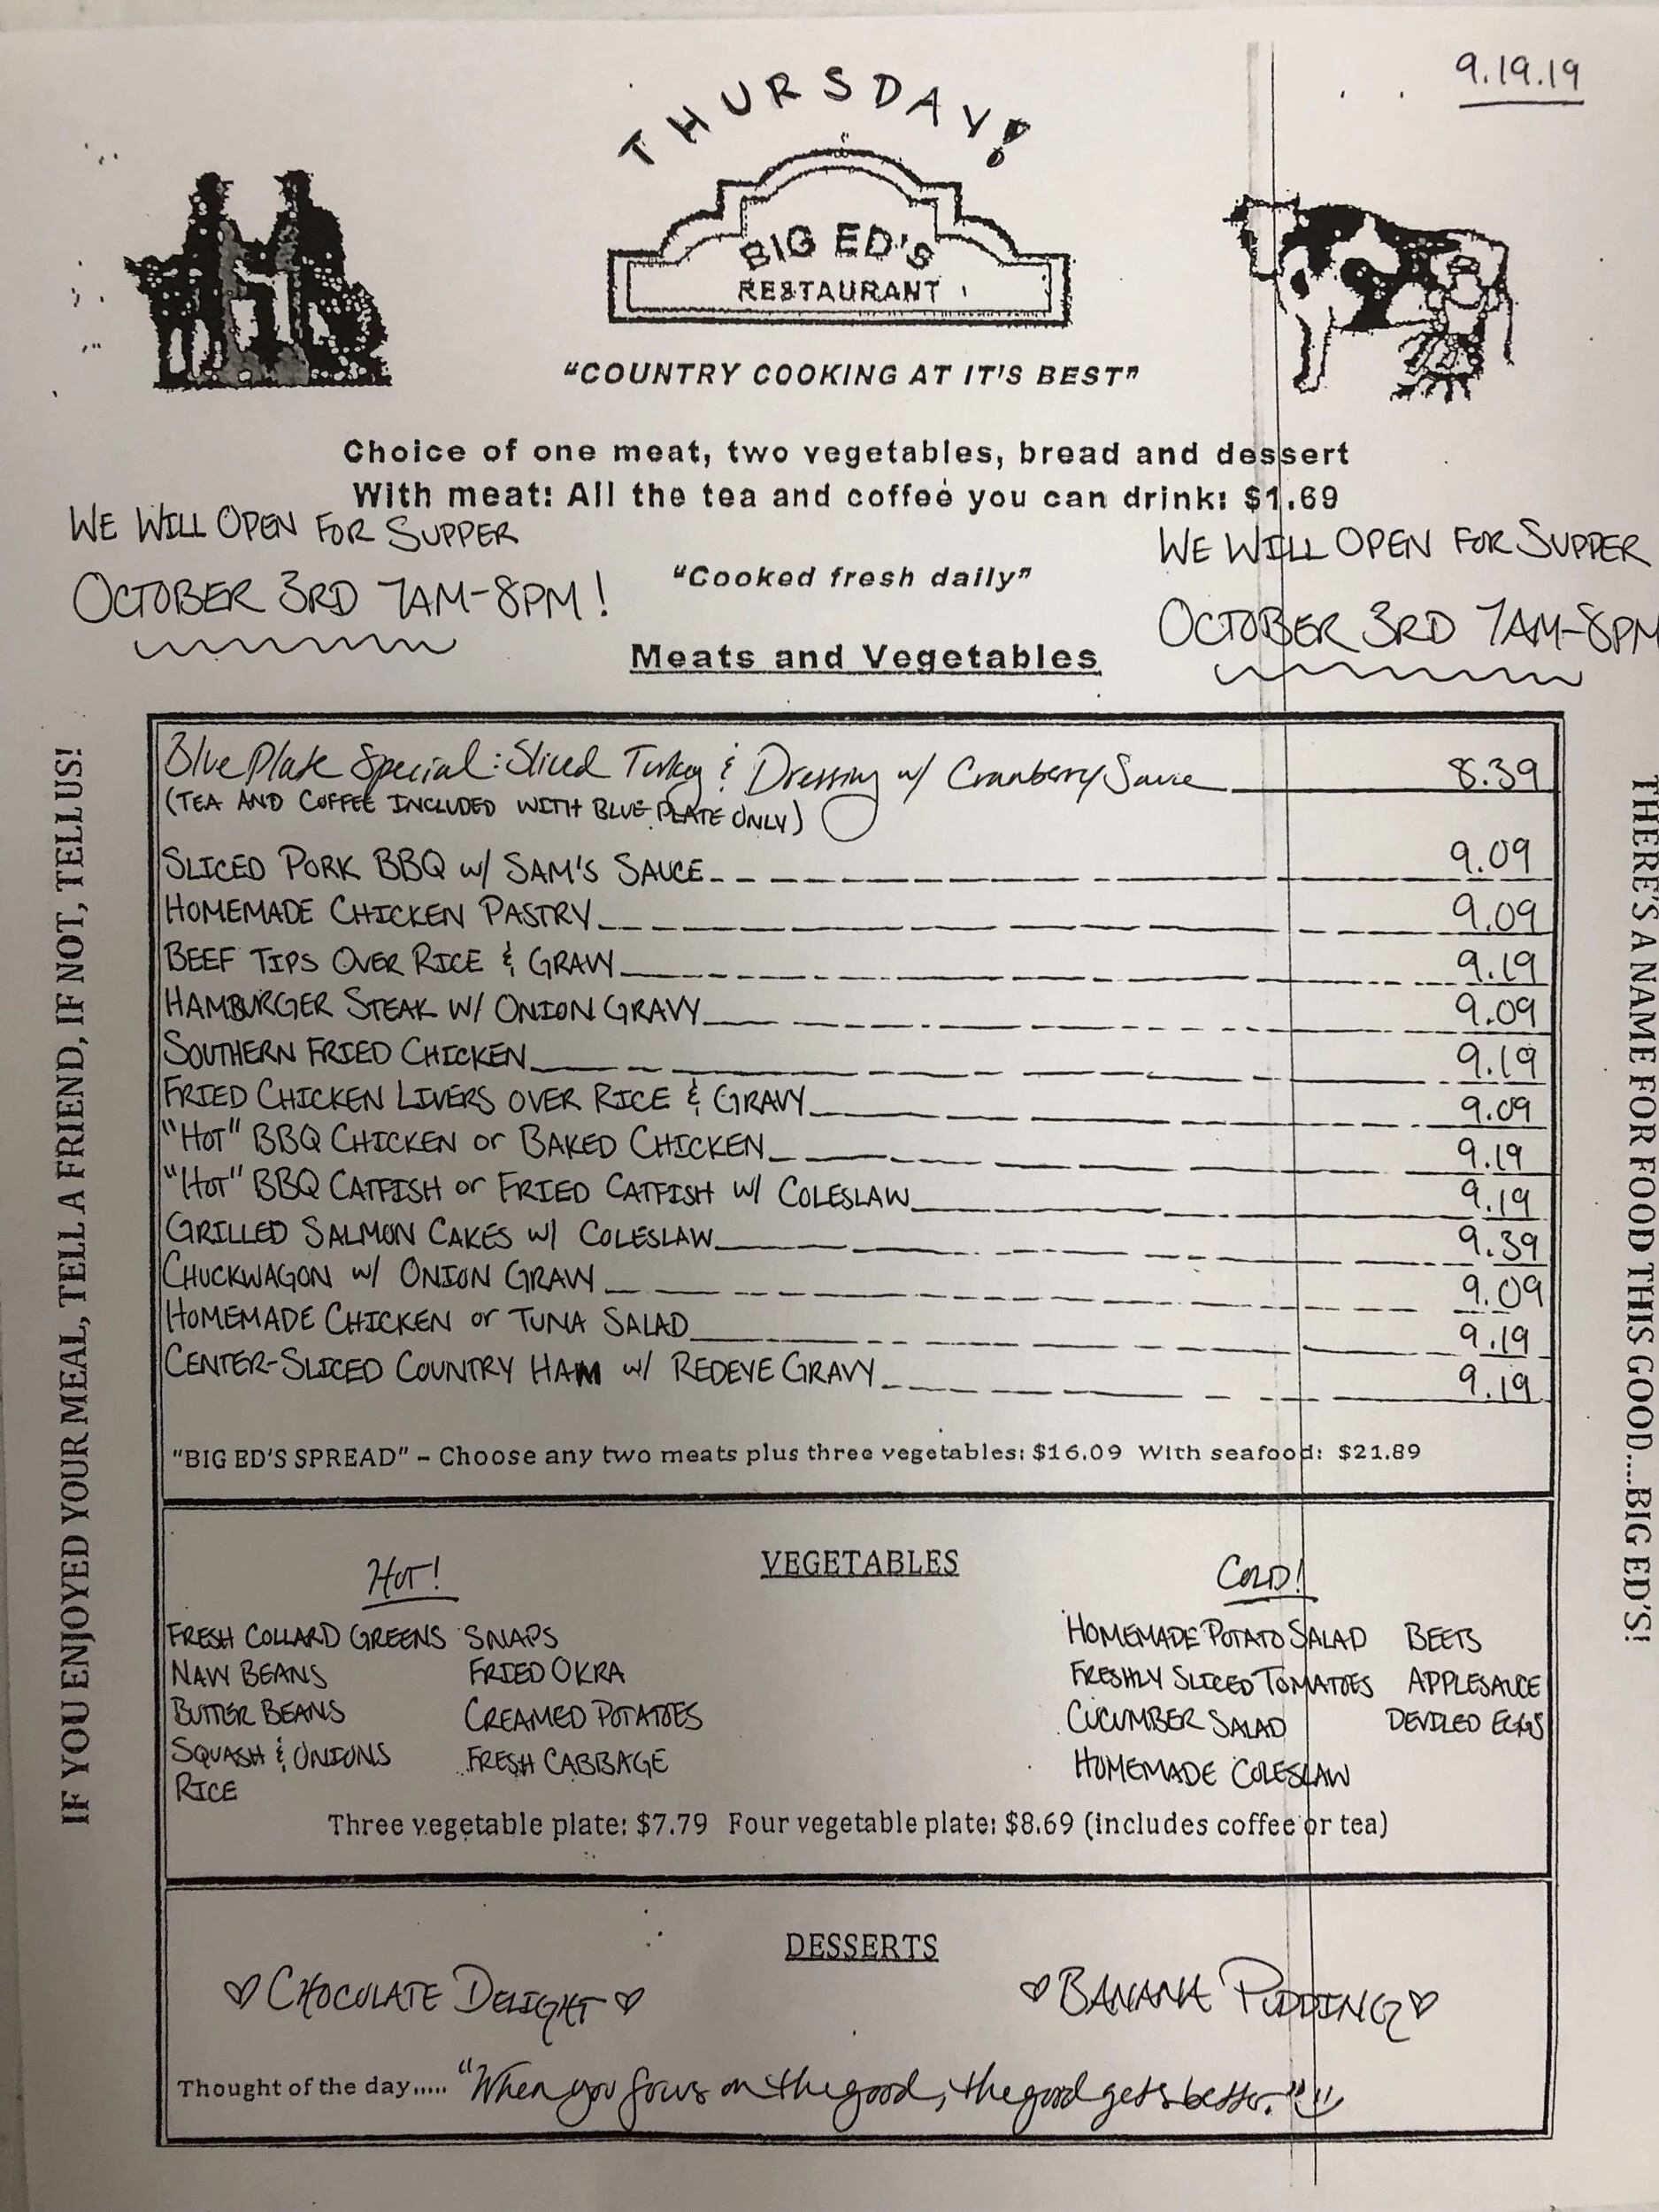 9.19.19
THURSDAY!
BIG ED'S
RESTAURANT
"COUNTRY COOKING AT IT'S BEST"
Choice of one meat, two vegetables, bread and dessert
With meat: All the tea and coffee you can drink: $1.69
WE WILL OPEN FOR SUPPER
OCTOBER 3RD 7AM-8PM!
WE WILL OPEN FOR SUPPER
OCTOBER 3RD 7AM-8PM
"Cooked fresh daily"
Meats and Vegetables
Blue Plate Special: Sliced Turkey & Dressing w/ Cranberry Sauce 8.39
(TEA AND COFFEE INCLUDED WITH BLUE PLATE ONLY)
SLICED PORK BBQ w/ SAM'S SAUCE 9.09
HOMEMADE CHICKEN PASTRY 9.09
BEEF TIPS OVER RICE & GRAVY 9.19
HAMBURGER STEAK W/ ONION GRAVY 9.09
SOUTHERN FRIED CHICKEN 9.19
FRIED CHICKEN LIVERS OVER RICE & GRAVY 9.09
"HOT" BBQ CHICKEN or BAKED CHICKEN 9.19
"HOT" BBQ CATFISH or FRIED CATFISH w/ COLESLAW 9.19
GRILLED SALMON CAKES w/ COLESLAW 9.39
CHUCKWAGON w/ ONION GRAVY 9.09
HOMEMADE CHICKEN or TUNA SALAD 9.19
CENTER-SLICED COUNTRY HAM w/ REDEYE GRAVY 9.19
"BIG ED'S SPREAD" – Choose any two meats plus three vegetables: $16.09 With seafood: $21.89
VEGETABLES
HOT!
FRESH COLLARD GREENS SNAPS
NAVY BEANS FRIED OKRA
BUTTER BEANS CREAMED POTATOES
SQUASH & ONIONS FRESH CABBAGE
RICE
COLD!
HOMEMADE POTATO SALAD BEETS
FRESHLY SLICED TOMATOES APPLESAUCE
CUCUMBER SALAD DEVILED EGGS
HOMEMADE COLESLAW
Three vegetable plate: $7.79 Four vegetable plate: $8.69 (includes coffee or tea)
DESSERTS
♡ CHOCOLATE DELIGHT ♡ ♡ BANANA PUDDING ♡
Thought of the day..... "When you focus on the good, the good gets better."
IF YOU ENJOYED YOUR MEAL, TELL A FRIEND, IF NOT, TELL US!
THERE'S A NAME FOR FOOD THIS GOOD....BIG ED'S!